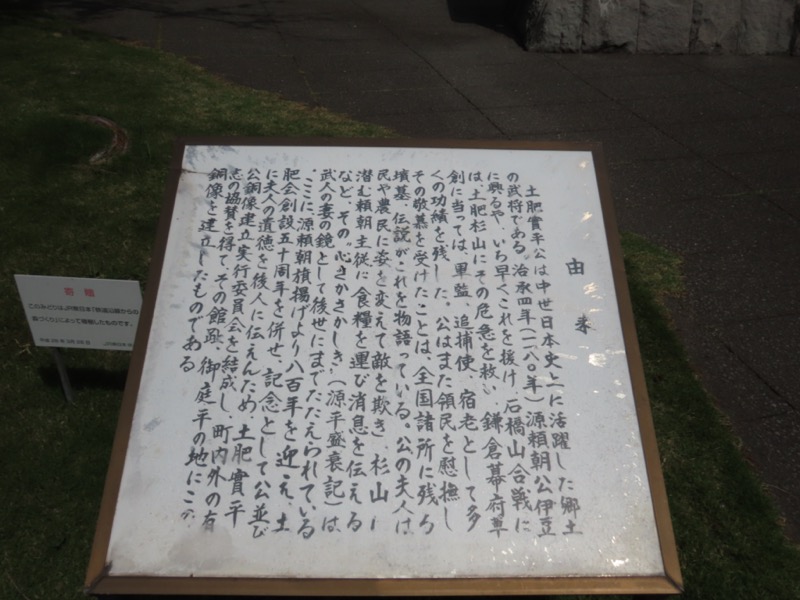 由来
土肥實平公は中世日本史上に活躍した郷土
の武将である。治承四年(一一八〇年)源頼朝公伊豆
に興るや、いち早くこれを援け、石橋山合戦に
は、土肥杉山にその危急を救い、鎌倉幕府草
創に当っては、軍監、追捕使、宿老として多
くの功績を残した。公はまた領民を慰撫し
その敬慕を受けたことは、全国諸所に残る
墳墓、伝説がこれを物語っている。公の夫人は
民や農民に姿を変えて敵を欺き、杉山に
潜む頼朝主従に食糧を運び消息を伝える
など、その"心さかさかしき"(源平盛衰記)は、
武人の妻の鏡として後世にまでたたえられている
。ここに源頼朝旗揚げより八百年を迎え、土
肥会創設五十周年を併せ、記念として公並び
に夫人の遺徳を後人に伝えんため、土肥實平
公銅像建立実行委員会を結成し、町内外の有
志の協賛を得て、その館趾、御庭平の地にこの
銅像を建立したものである
寄贈
このみどりはJR東日本「鉄道沿線からの
森づくり」によって植樹したものです。